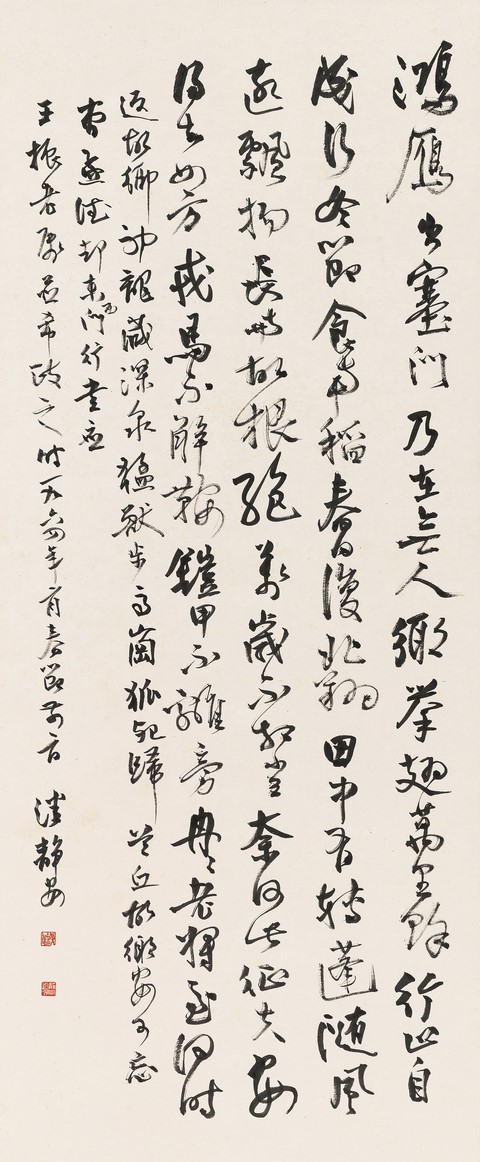 鴻鴈出塞門乃在無人鄉舉翅萬里餘行止自
成行冬節食南稻春日復北翔田中有轉蓬隨風
遠飄揚長與故根絕萬歲不相當奈何此征夫安
得去四方戎馬不解鞍鎧甲不離旁冉冉老將至何時
返故鄉神龍藏深泉猛獸步高崗狐死歸首丘故鄉安可忘
曹孟德却東西門行書應
王振老屬並希政之時一九六四年月春節前潘靜安